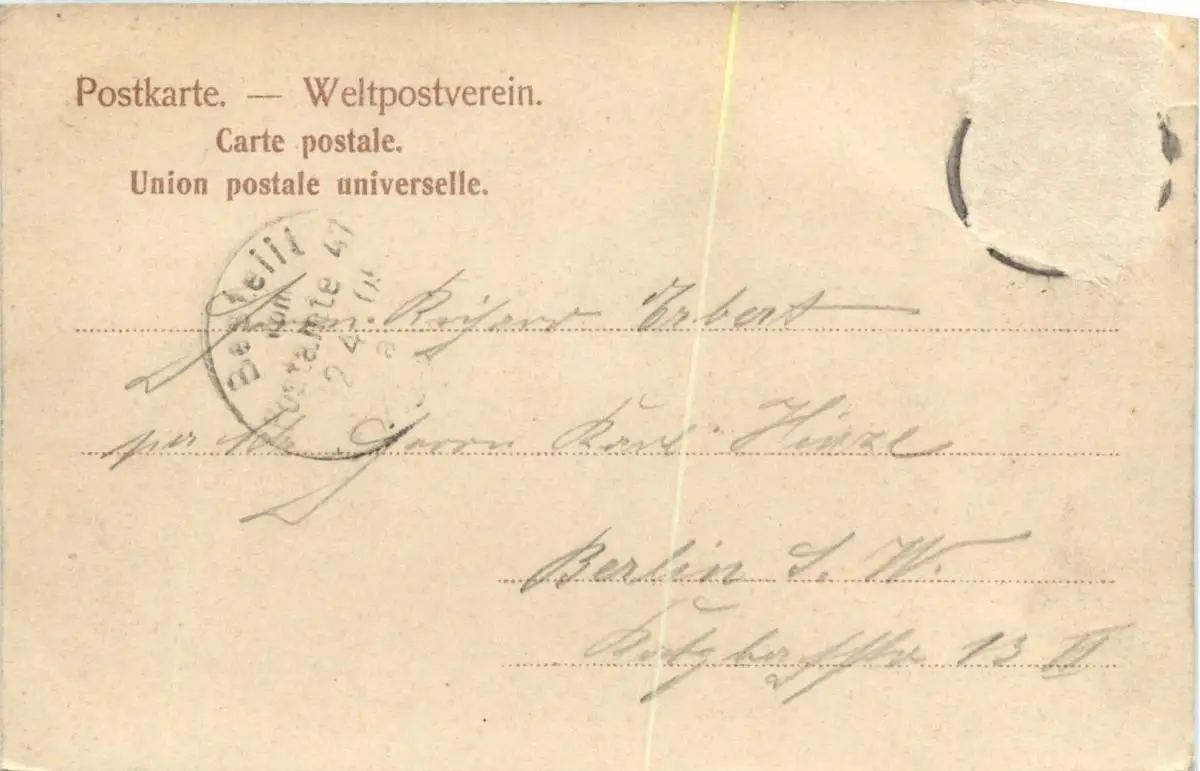 Postkarte. — Weltpostverein.
Carte postale.
Union postale universelle.
Bestellt
vom
Postamte 47
2 4
Herrn Richard Erbert
per Adr. Herrn Karl Hinze
Berlin S. W.
13 II